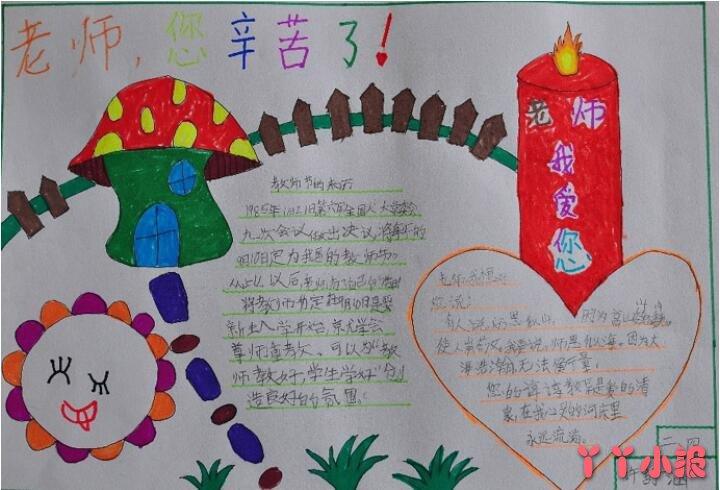 老师,您辛苦了!
老师
我
爱
您
教师节的来历
1985年1月21日第六届全国人大常委会
九次会议做出决议,将每年的
9月10日定为我国的教师节。
从此以后,老师有了自己的节日
将教师节定在9月10日是
新生入学开始,
尊师重教 可以为“教
师教好,学生学好”创
造良好的氛围。
老师,我想
您说:
有人说,师恩如山,因为高山
使人崇敬。我要说,师恩似海,因为大
海浩瀚,无法估量。
您的谆谆教导是爱的清
泉,在我心灵的河床里
永远流淌。
二、四
丫丫小报
许